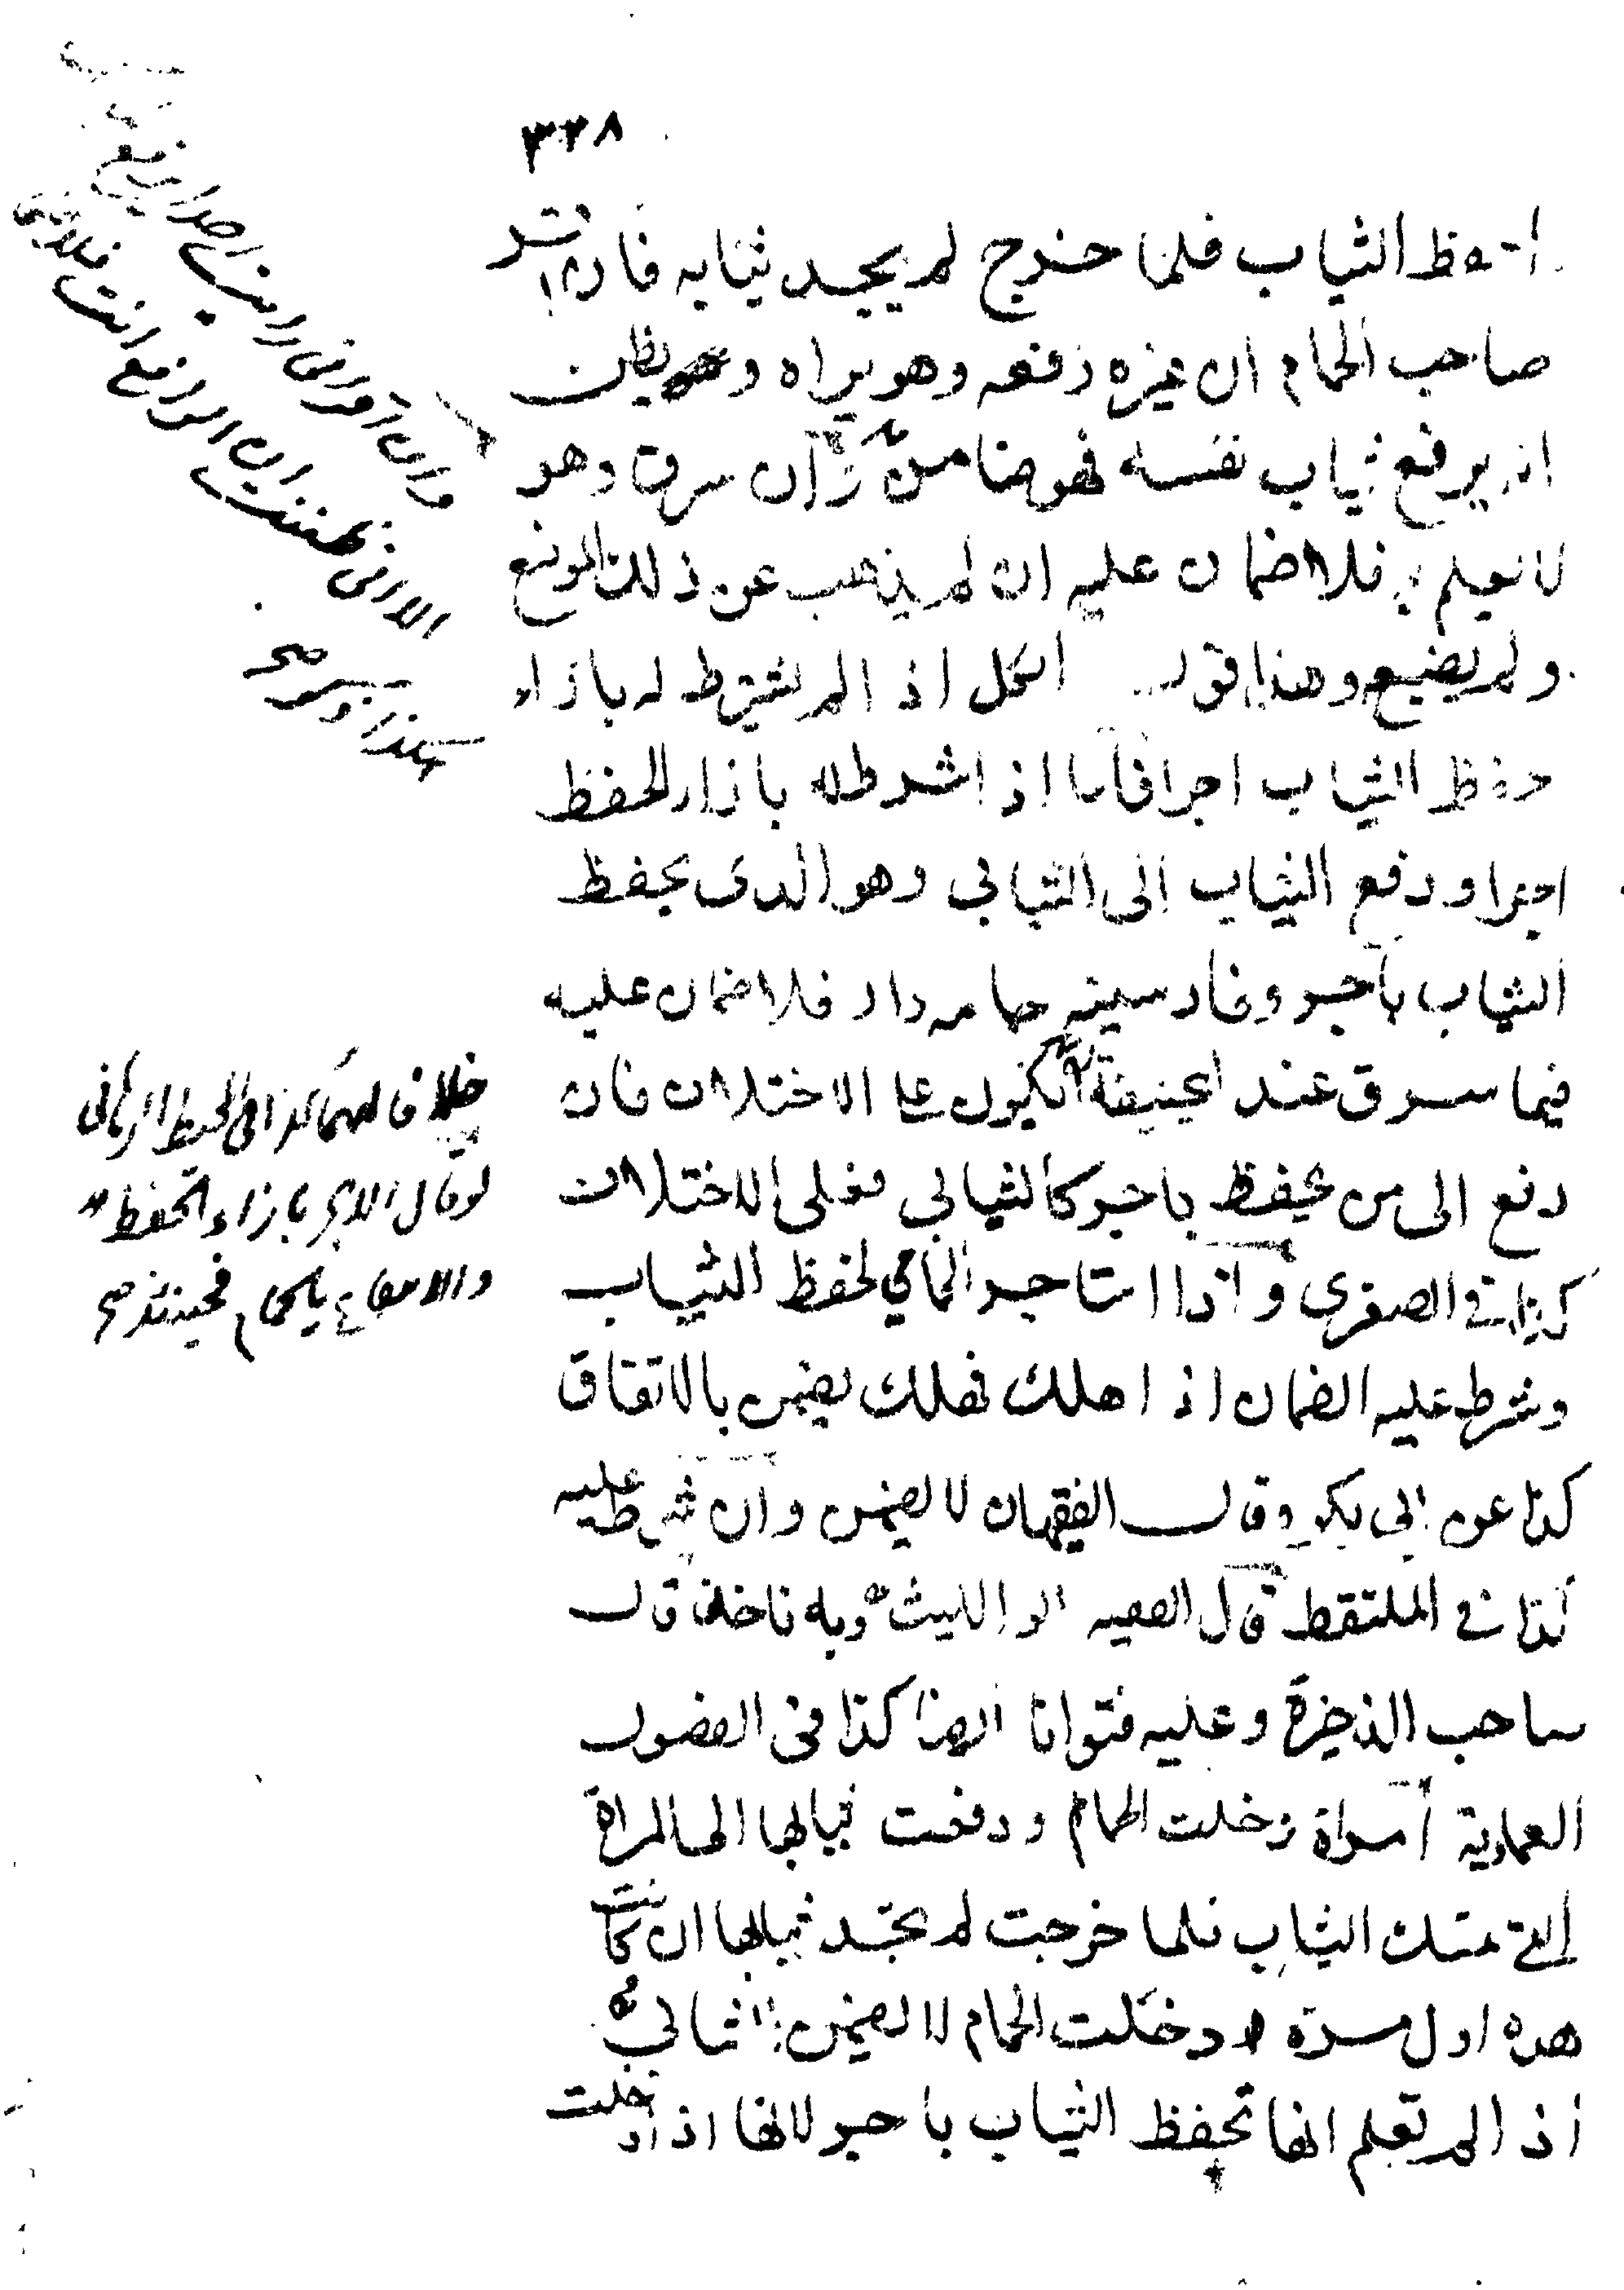 ٣٢٨
احفظ الثياب فلما خرج لم يجد ثيابه فان اقر
صاحب الحمام ان غيره رفعه وهو يراه و يظن
انه يرفع ثياب نفسه فهو ضامن وان سرق وهو
لا يعلم به فلا ضمان عليه ان لم يذهب عن ذلك الموضع
ولم يضيع وهذا قول الكل اذا لم يشترط له بازاء
حفظ الثياب اجرا فاما اذا شرط له بازاء الحفظ
اجرا و دفع الثياب الى الثيابي وهو الذي يحفظ
الثياب باجر وفارسيته جامه دار فلا ضمان عليه
فيما سرق عند ابي حنيفة لكون على الاختلاف فان
دفع الى من يحفظ باجر كالثيابي فعلى الاختلاف
كذا في الصغرى و اذا استاجر الحمامي لحفظ الثياب
وشرط عليه الضمان اذا هلك فهلك يضمن بالاتفاق
كذا عن ابي بكر وقال الفقيهان لا يضمن وان شرط عليه
كذا في الملتقط قال الفقيه ابو الليث وبه ناخذ قال
صاحب الذخيرة وعليه فتوانا ايضا كذا في الفصول
العمادية امراة دخلت الحمام و دفعت ثيابها الى المراة
التي تمسك الثياب فلما خرجت لم تجد ثيابها ان كانت
هذه اول مرة دخلت الحمام لا يضمن الثيابي
اذا لم تعلم انها تحفظ الثياب باجر لانها اذا دخلت
وان اقر اني رايت احدا يرفع
ثيابك الا اني ظننت ان الرافع انت فلا ضمان
خلافا لهما كذا في المحيط البرهاني
لو قال الاجر بازاء الحفظ
والانتفاع بالحمام فحينئذ صح